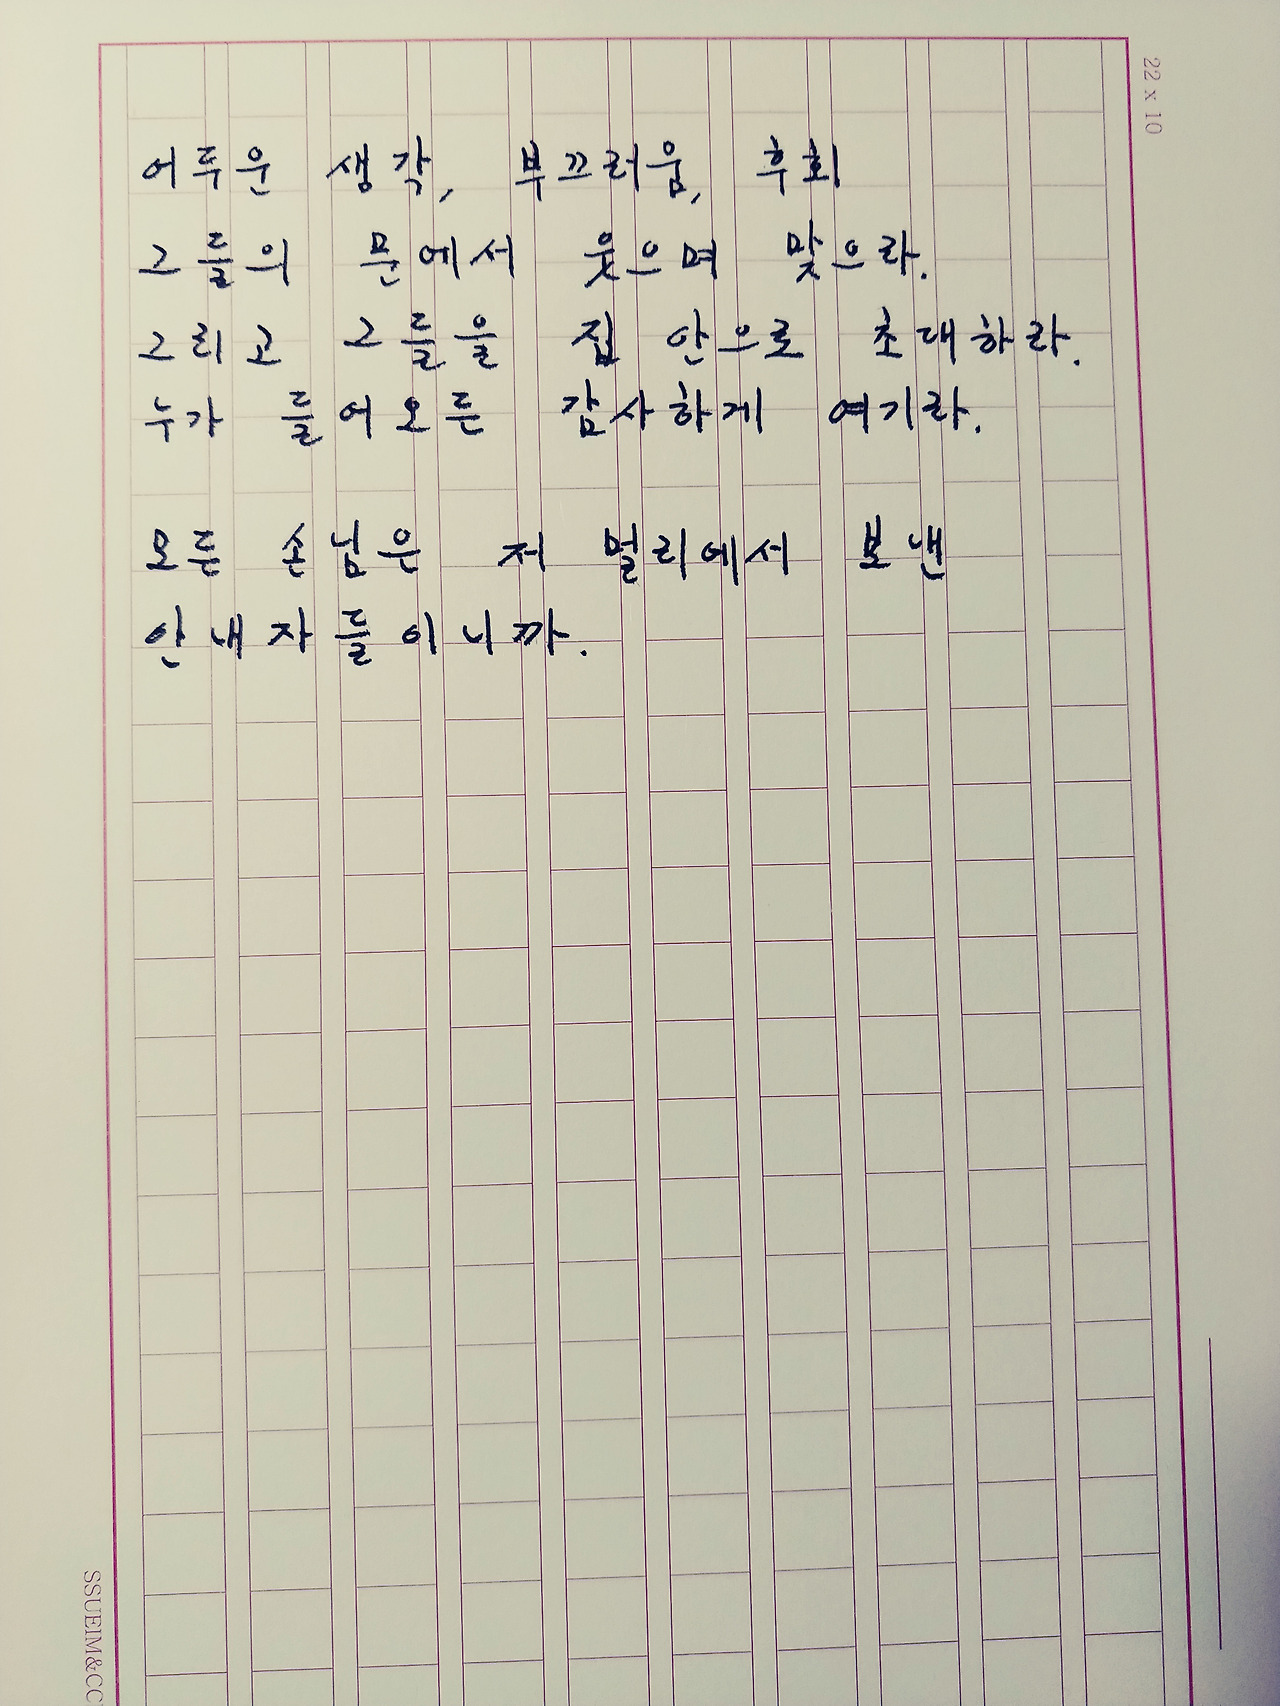 어두운 생각, 부끄러움, 후회
그들의 문에서 웃으며 맞으라.
그리고 그들을 집 안으로 초대하라.
누가 들어오든 감사하게 여기라.
모든 손님은 저 멀리에서 보낸
안내자들이니까.
22 x 10